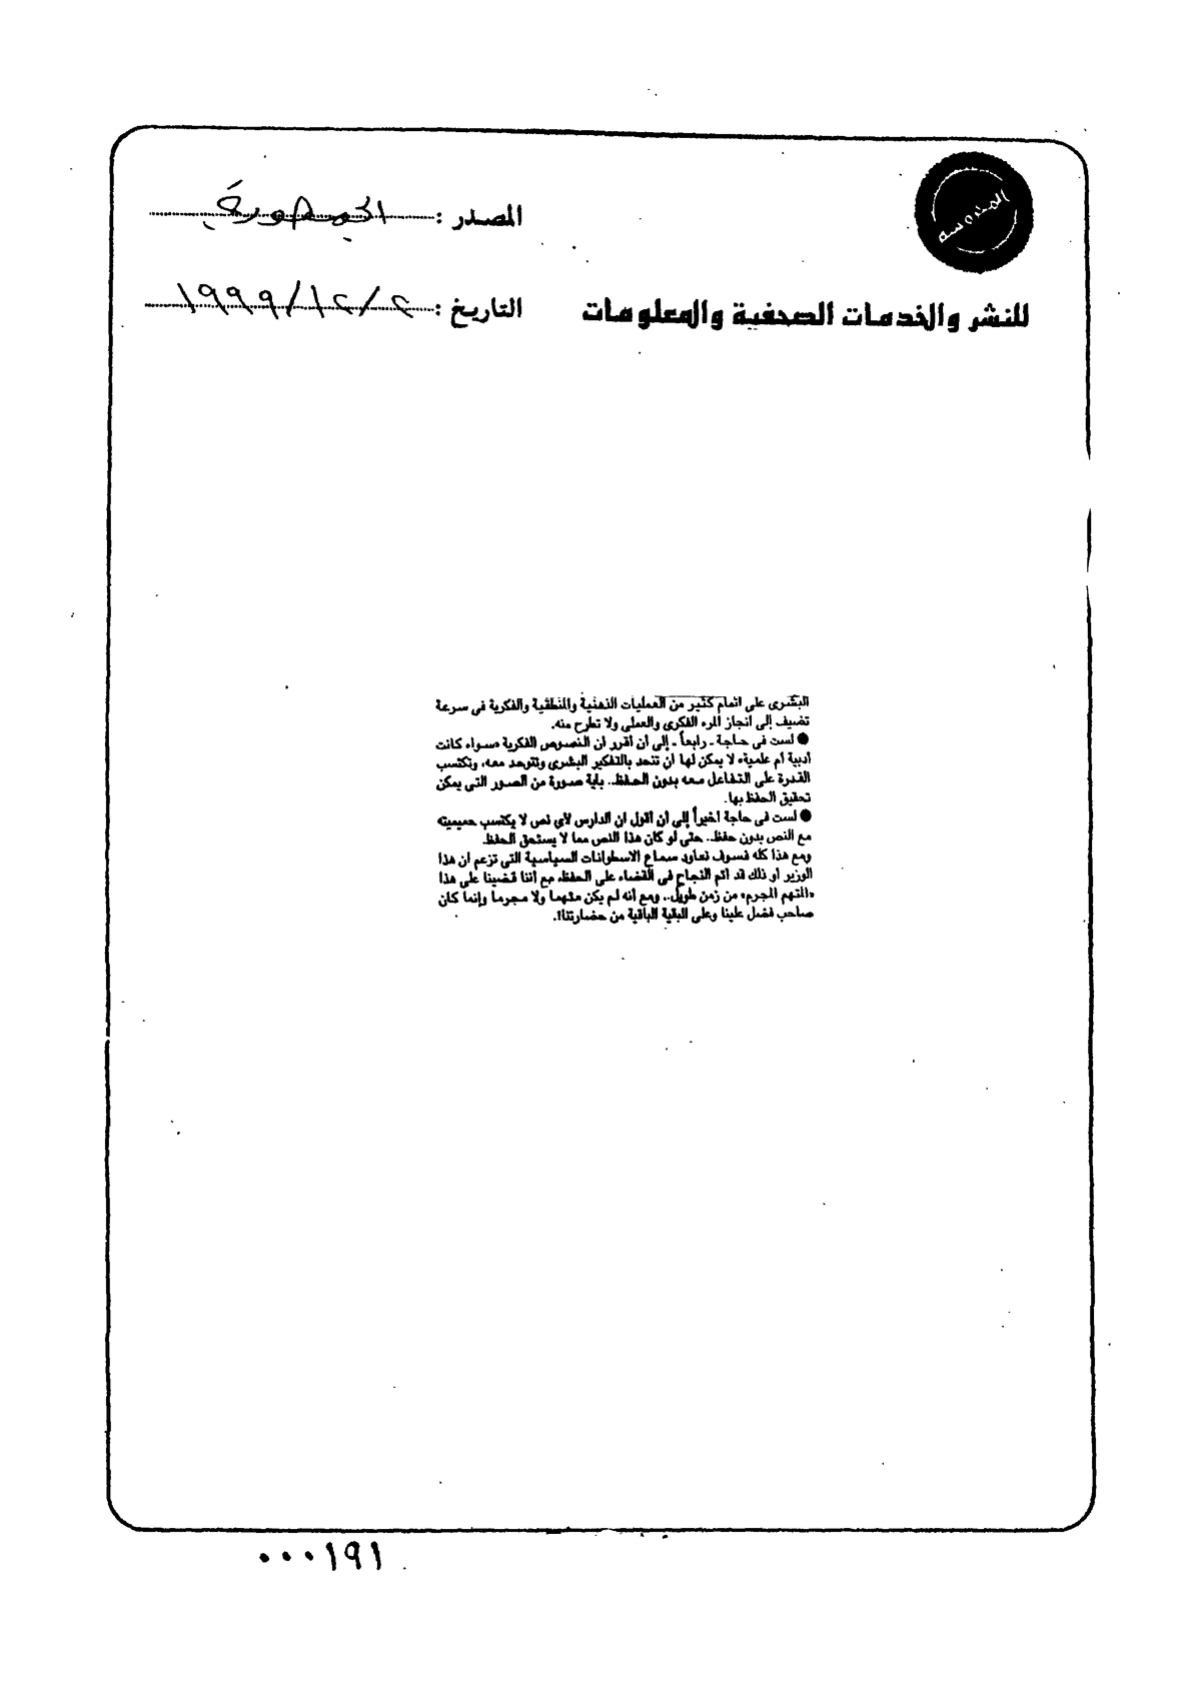 المحروسة
المصدر : الجمهورية
للنشر والخدمات الصحفية والمعلومات
التاريخ : ٢/١٢/١٩٩٩
البشرى على اتمام كثير من العمليات الذهنية والمنطقية والفكرية فى سرعة
تضيف إلى انجاز المرء الفكرى والعملى ولا تطرح منه.
● لست فى حاجة ـ رابعاً ـ إلى أن أقرر ان النصوص الفكرية «سواء كانت
أدبية أم علمية» لا يمكن لها أن تتحد بالتفكير البشرى وتتوحد معه، وتكتسب
القدرة على التفاعل معه بدون الحفظ.. بأية صورة من الصور التى يمكن
تحقيق الحفظ بها.
● لست فى حاجة اخيراً إلى أن أقول ان الدارس لأى نص لا يكتسب حميميته
مع النص بدون حفظ.. حتى لو كان هذا النص مما لا يستحق الحفظ.
ومع هذا كله فسوف نعاود سماع الاسطوانات السياسية التى تزعم ان هذا
الوزير أو ذلك قد اتم النجاح فى القضاء على الحفظ، مع أننا قضينا على هذا
«المتهم المجرم» من زمن طويل.. ومع أنه لم يكن متهما ولا مجرما وإنما كان
صاحب فضل علينا وعلى البقية الباقية من حضارتنا!.
٠٠٠١٩١